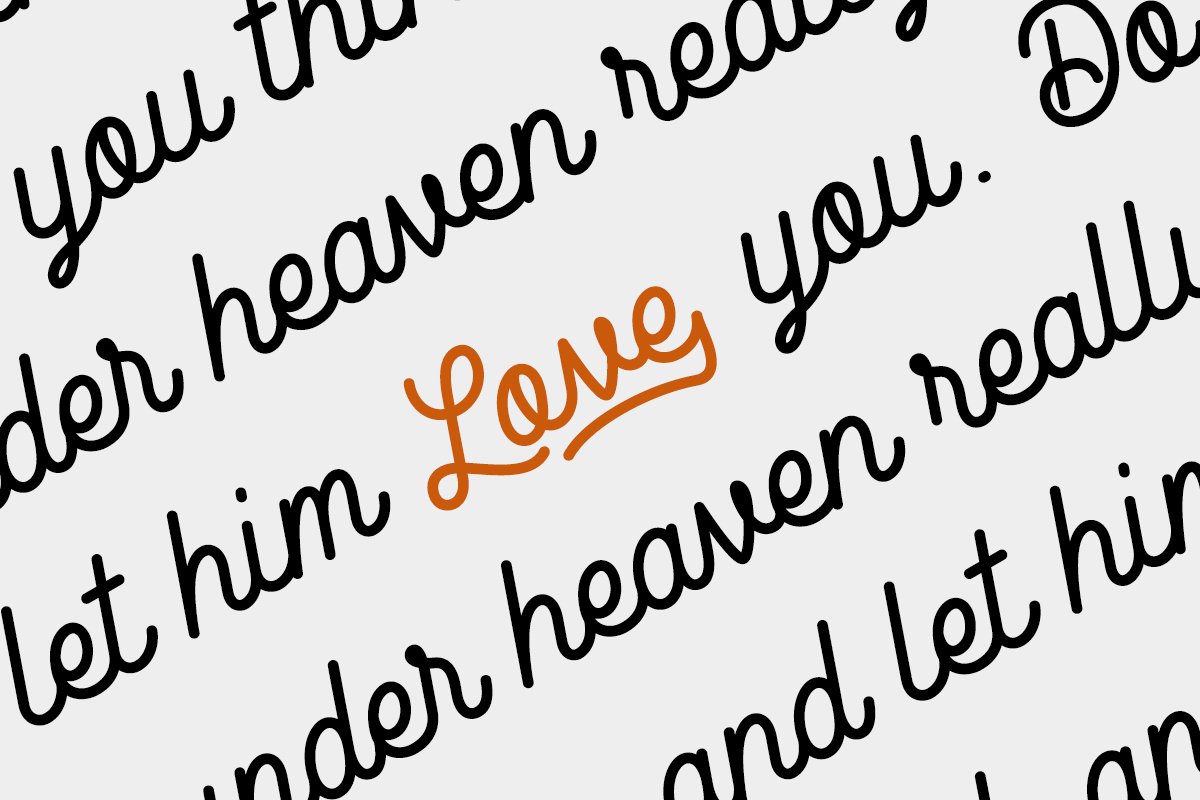 you thi
der heaven really
let him Love you. Do
under heaven really
and let him
an